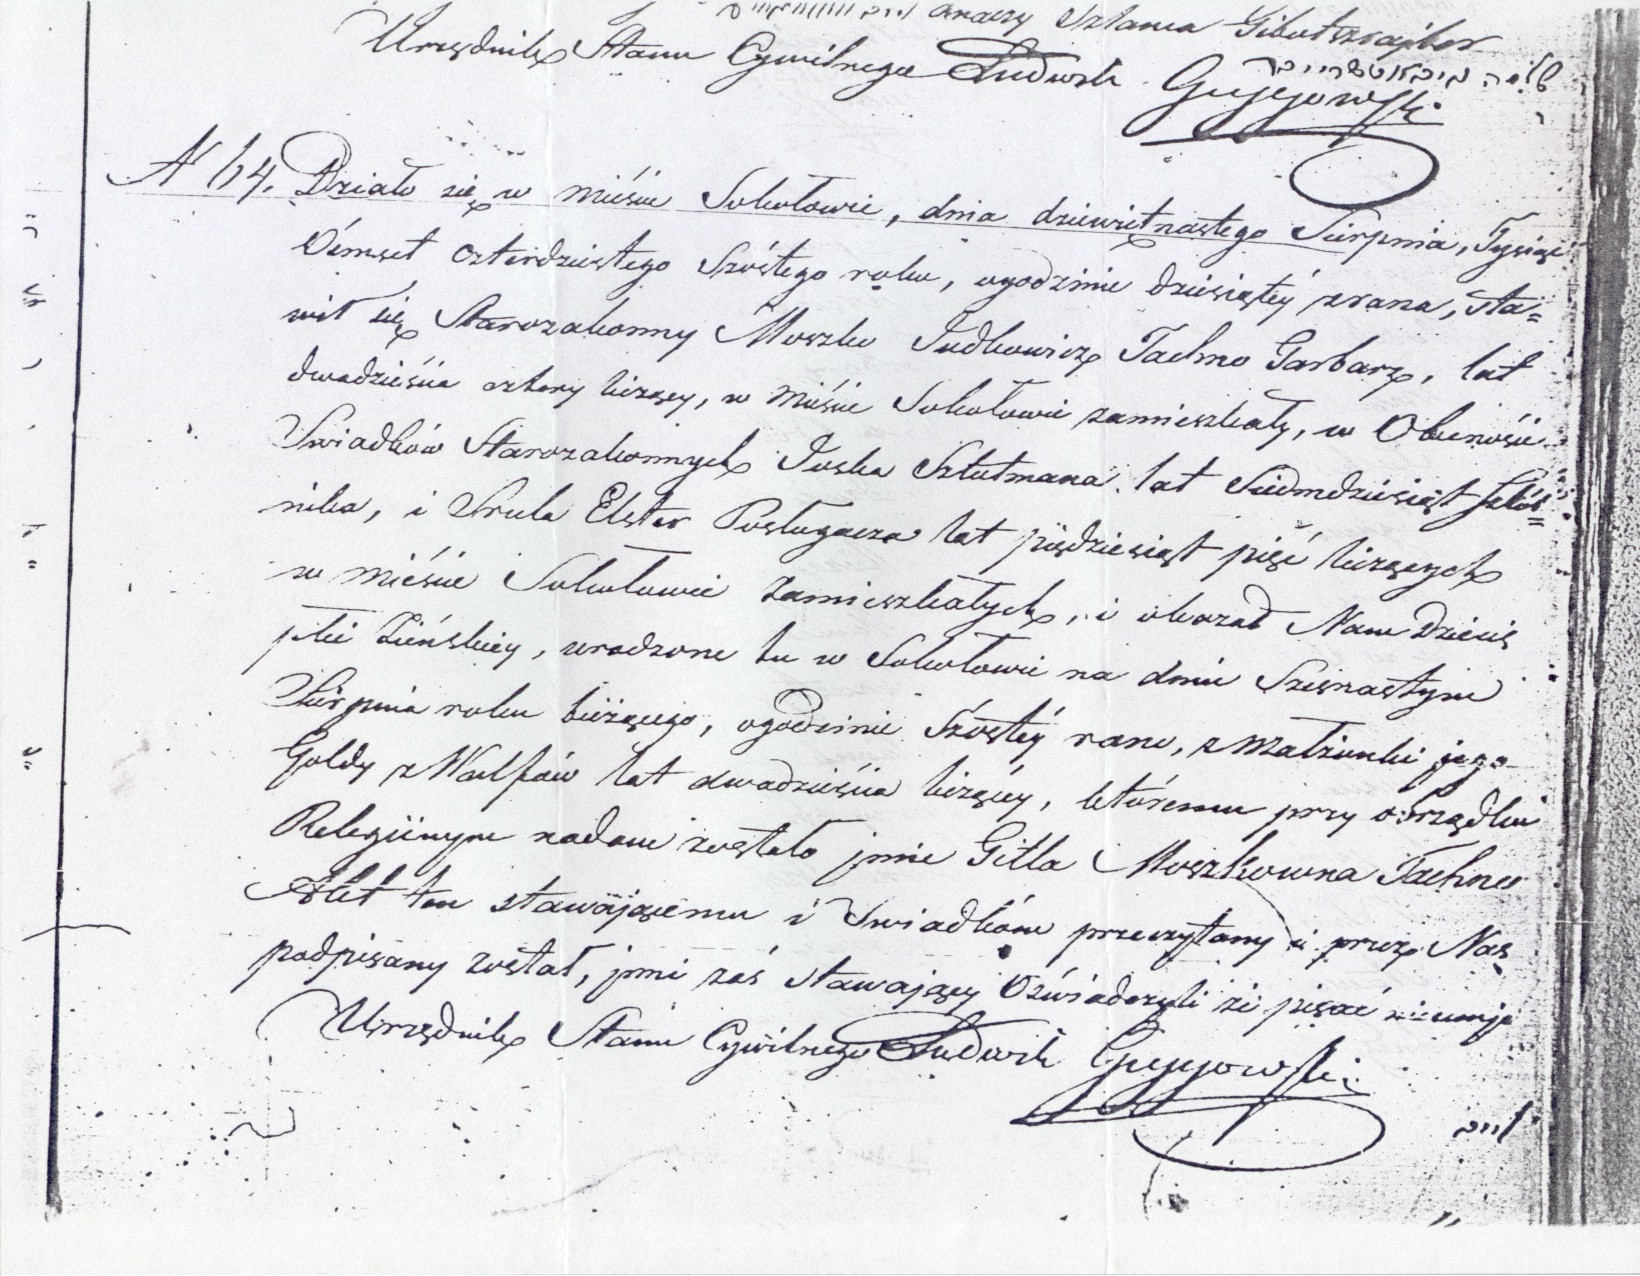 znaczy Szlama Gibutszrajber
Urzędnik Stanu Cywilnego Ludwik Gujgowski
N 64. Działo się w mieście Sokołowie, dnia dziewiętnastego Sierpnia, Tysiąc
Ośmset czterdziestego Szóstego roku, ogodzinie dziesiątéy zrana, sta=
wił się Starozakonny Moszko Judkowicz Tachno Garbarz, lat
dwadzieścia cztery liczący, w mieście Sokołowie zamieszkały, w Obecności
Swiadków Starozakonnych Joska Sztutmana lat Siedmdziesiąt Szkól=
nika, i Srula Elster Posługacza lat pięśdziesiąt pięć liczących
w mieście Sokołowie zamieszkałych, i okazał Nam Dziecię
płci Żeńskiey, urodzone tu w Sokołowie na dniu Szesnastym
Sierpnia roku bieżącego, ogodzinie Szóstéy rano, z Małżonki jego
Goldy z Wulfów lat dwadzieścia liczącéy, któremu przy obrządku
Religiinym nadane zostało jmie Gitla Moszkowna Tachno
Akt ten stawającemu i Swiadkom przeczytany i przez Nas
podpisany został, jmi zaś stawający Oświadczyli że pisać nieumją
Urzędnik Stanu Cywilnego Ludwik Gujgowski